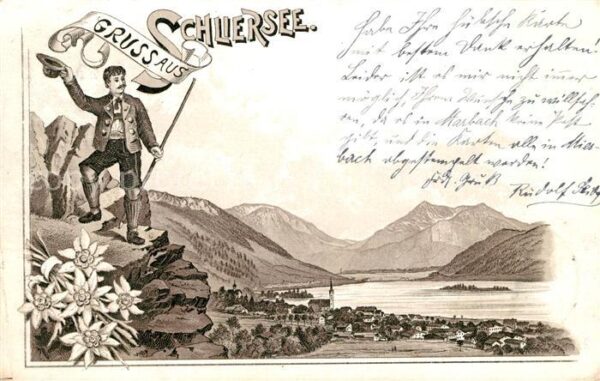 GRUSS AUS
SCHLIERSEE.
Habe Ihre hübsche Karte
mit bestem Dank erhalten!
Leider ist es mir nicht immer
möglich, Ihrem Wunsche zu willfah-
ren, da es in Marbach keine Post
gibt und die Karten alle in Mies-
bach abgestempelt werden!
Gruß
Rudolf